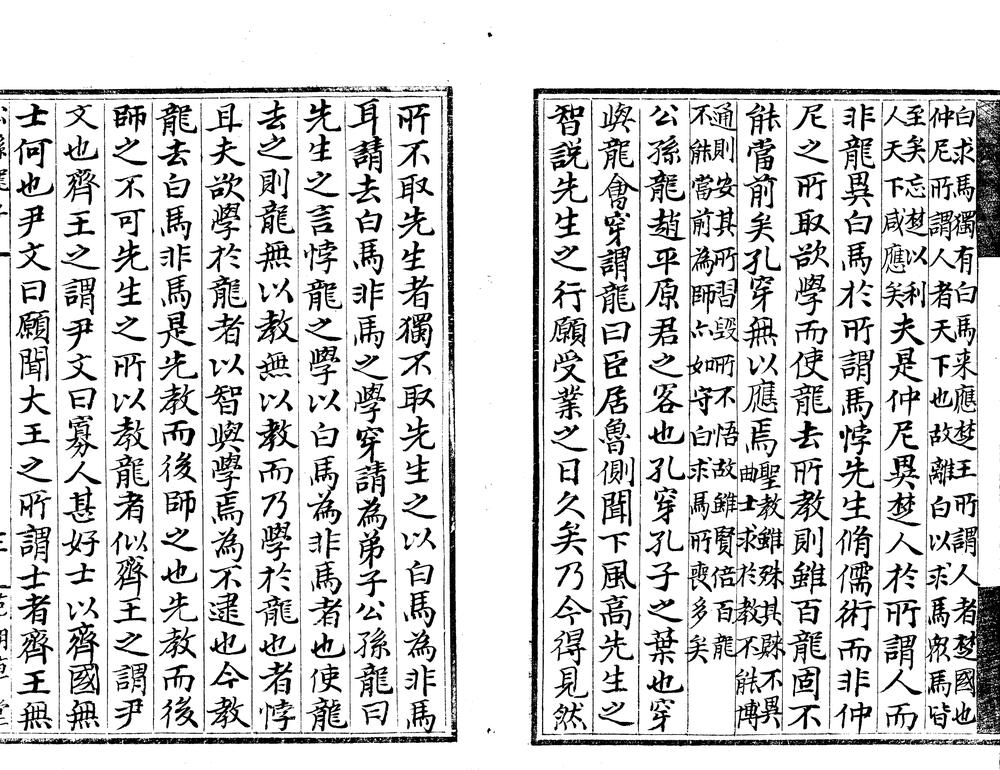 白求馬獨有白馬来應楚王所謂人者楚國也
仲尼所謂人者天下也故離白以求馬衆馬皆
至矣忘楚以利
人天下咸應矣
夫是仲尼異楚人於所謂人而
非龍異白馬於所謂馬悖先生脩儒術而非仲
尼之所取欲學而使龍去所教則雖百龍固不
能當前矣孔穿無以應焉
聖教雖殊其歸不異
曲士求於教不能博
通則安其所習毀所不悟故雖賢倍百龍
不能當前為師亦如守白求馬所喪多矣
公孫龍趙平原君之客也孔穿孔子之葉也穿
與龍會穿謂龍曰臣居魯側聞下風高先生之
智説先生之行願受業之日久矣乃今得見然
所不取先生者獨不取先生之以白馬為非馬
耳請去白馬非馬之學穿請為弟子公孫龍曰
先生之言悖龍之學以白馬為非馬者也使龍
去之則龍無以教無以教而乃學於龍也者悖
且夫欲學於龍者以智與學焉為不逮也今教
龍去白馬非馬是先教而後師之也先教而後
師之不可先生之所以教龍者似齊王之謂尹
文也齊王之謂尹文曰寡人甚好士以齊國無
士何也尹文曰願聞大王之所謂士者齊王無